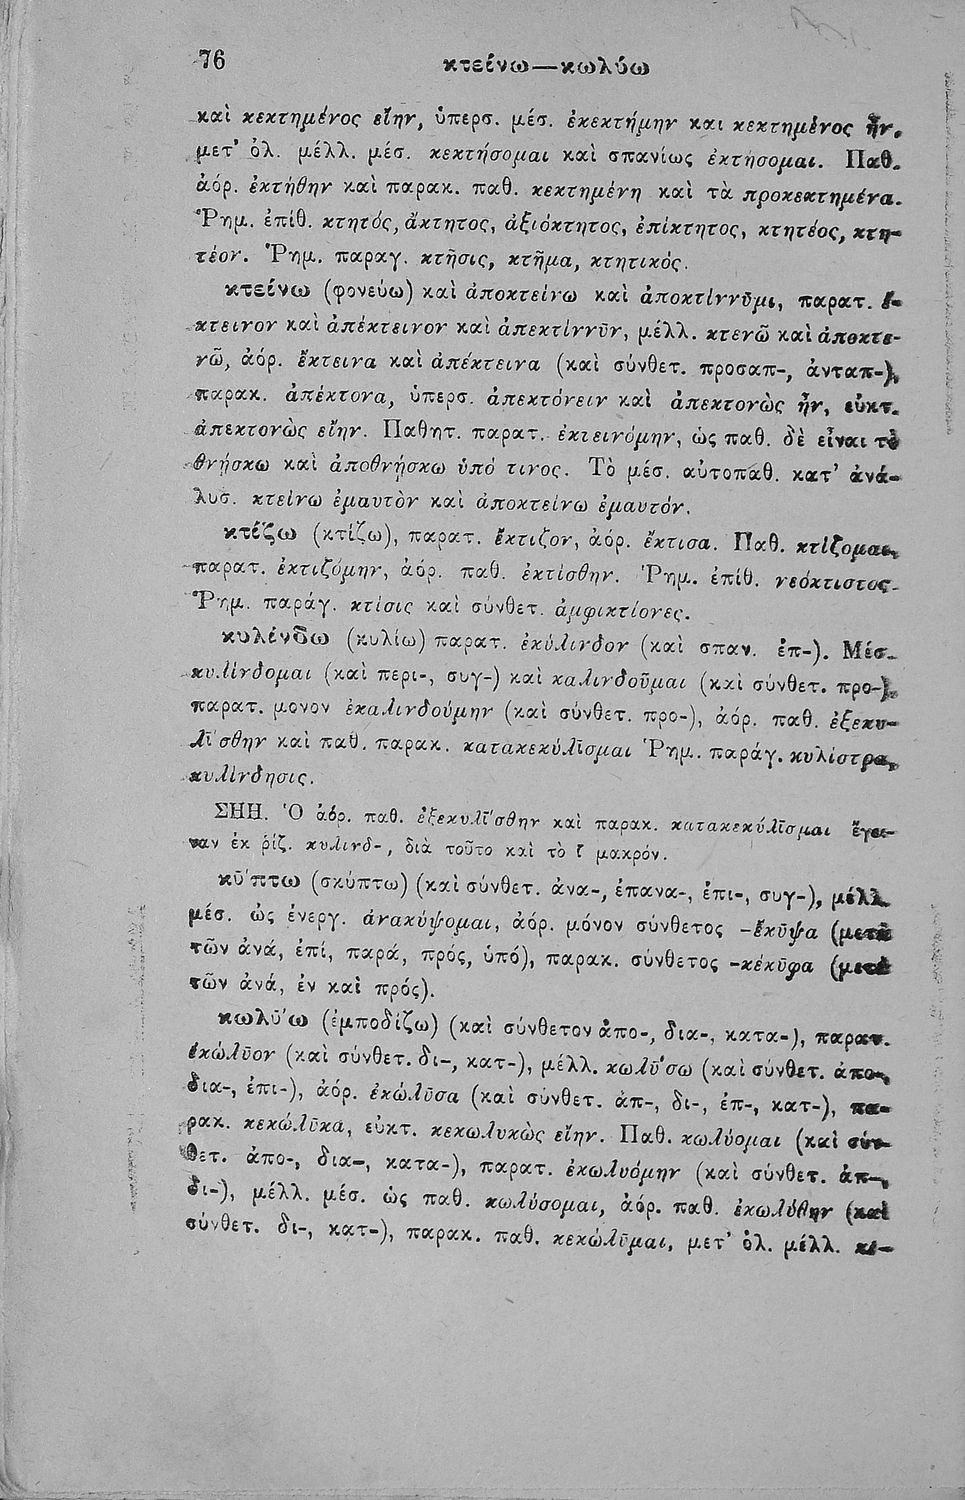 76
κτείνω—κωλύω
καὶ κεκτημένος εἴην, ὑπερσ. μέσ. ἐκεκτήμην και κεκτημένος ἦν,
μετ' ὀλ. μέλλ. μέσ. κεκτήσομαι καὶ σπανίως ἐκτήσομαι. Παθ.
ἀόρ. ἐκτήθην καὶ παρακ. παθ. κεκτημένη καὶ τὰ προκεκτημένα.
Ῥημ. ἐπίθ. κτητός, ἄκτητος, ἀξιόκτητος, ἐπίκτητος, κτητέος, κτη-
τέον. Ῥημ. παραγ. κτῆσις, κτῆμα, κτητικός.
κτείνω (φονεύω) καὶ ἀποκτείνω καὶ ἀποκτίννῡμι, παρατ. ἔ-
κτεινον καὶ ἀπέκτεινον καὶ ἀπεκτίννῡν, μέλλ. κτενῶ καὶ ἀποκτε-
νῶ, ἀόρ. ἔκτεινα καὶ ἀπέκτεινα (καὶ σύνθετ. προσαπ-, ἀνταπ-),
παρακ. ἀπέκτονα, ὑπερσ. ἀπεκτόνειν καὶ ἀπεκτονὼς ἦν, εὐκτ.
ἀπεκτονὼς εἴην. Παθητ. παρατ. ἐκτεινόμην, ὡς παθ. δὲ εἶναι τὸ
θνήσκω καὶ ἀποθνήσκω ὑπό τινος. Τὸ μέσ. αὐτοπαθ. κατ' ἀνά-
λυσ. κτείνω ἐμαυτὸν καὶ ἀποκτείνω ἐμαυτόν.
κτίζω (κτίζω), παρατ. ἔκτιζον, ἀόρ. ἔκτισα. Παθ. κτίζομαι,
παρατ. ἐκτιζόμην, ἀόρ. παθ. ἐκτίσθην. Ῥημ. ἐπίθ. νεόκτιστος.
Ῥημ. παράγ. κτίσις καὶ σύνθετ. ἀμφικτίονες.
κυλίνδω (κυλίω) παρατ. ἐκύλινδον (καὶ σπαν. ἐπ-). Μέσ.
κυλίνδομαι (καὶ περι-, συγ-) καὶ καλινδοῦμαι (καὶ σύνθετ. προ-),
παρατ. μονον ἐκαλινδούμην (καὶ σύνθετ. προ-), ἀόρ. παθ. ἐξεκυ-
λῑ́σθην καὶ παθ. παρακ. κατακεκύλῑσμαι Ῥημ. παράγ. κυλίστρα,
κυλίνδησις.
ΣΗΗ. Ὁ ἀόρ. παθ. ἐξεκυλῑ́σθην καὶ παρακ. κατακεκύλῑσμαι ἔγει-
ναν ἐκ ῥίζ. κυλινδ-, διὰ τοῦτο καὶ τὸ ῑ μακρόν.
κῡ́πτω (σκύπτω) (καὶ σύνθετ. ἀνα-, ἐπανα-, ἐπι-, συγ-), μέλλ.
μέσ. ὡς ἐνεργ. ἀνακύψομαι, ἀόρ. μόνον σύνθετος -έκῡψα (μετὰ
τῶν ἀνά, ἐπί, παρά, πρός, ὑπό), παρακ. σύνθετος -κέκῡφα (μετὰ
τῶν ἀνά, ἐν καὶ πρός).
κωλῡ́ω (ἐμποδίζω) (καὶ σύνθετον ἀπο-, δια-, κατα-), παρατ.
ἐκώλῡον (καὶ σύνθετ. δι-, κατ-), μέλλ. κωλῡ́σω (καὶ σύνθετ. ἀπο-,
δια-, ἐπι-), ἀόρ. ἐκώλῡσα (καὶ σύνθετ. ἀπ-, δι-, ἐπ-, κατ-), πα-
ρακ. κεκώλῡκα, εὐκτ. κεκωλυκὼς εἴην. Παθ. κωλύομαι (καὶ σύν-
θετ. ἀπο-, δια-, κατα-), παρατ. ἐκωλυόμην (καὶ σύνθετ. ἀπ-,
δι-), μέλλ. μέσ. ὡς παθ. κωλύσομαι, ἀόρ. παθ. ἐκωλύθην (καὶ
σύνθετ. δι-, κατ-), παρακ. παθ. κεκώλῡμαι, μετ' ὀλ. μέλλ. κε-